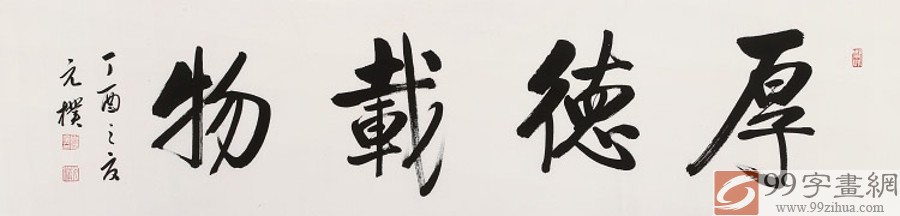 厚德載物
丁酉之夏
元樸
99字畫網
www.99zihua.com